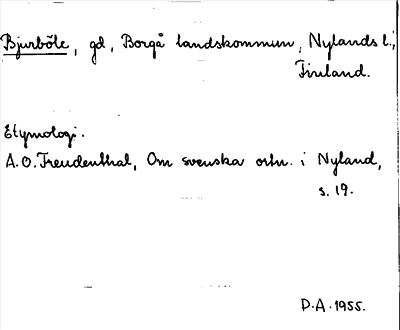 Bjurböle, gd, Borgå landskommun, Nylands l.,
Finland.
Etymologi.
A.O. Freudenthal, Om svenska ortn. i Nyland,
s. 19.
D.A. 1955.